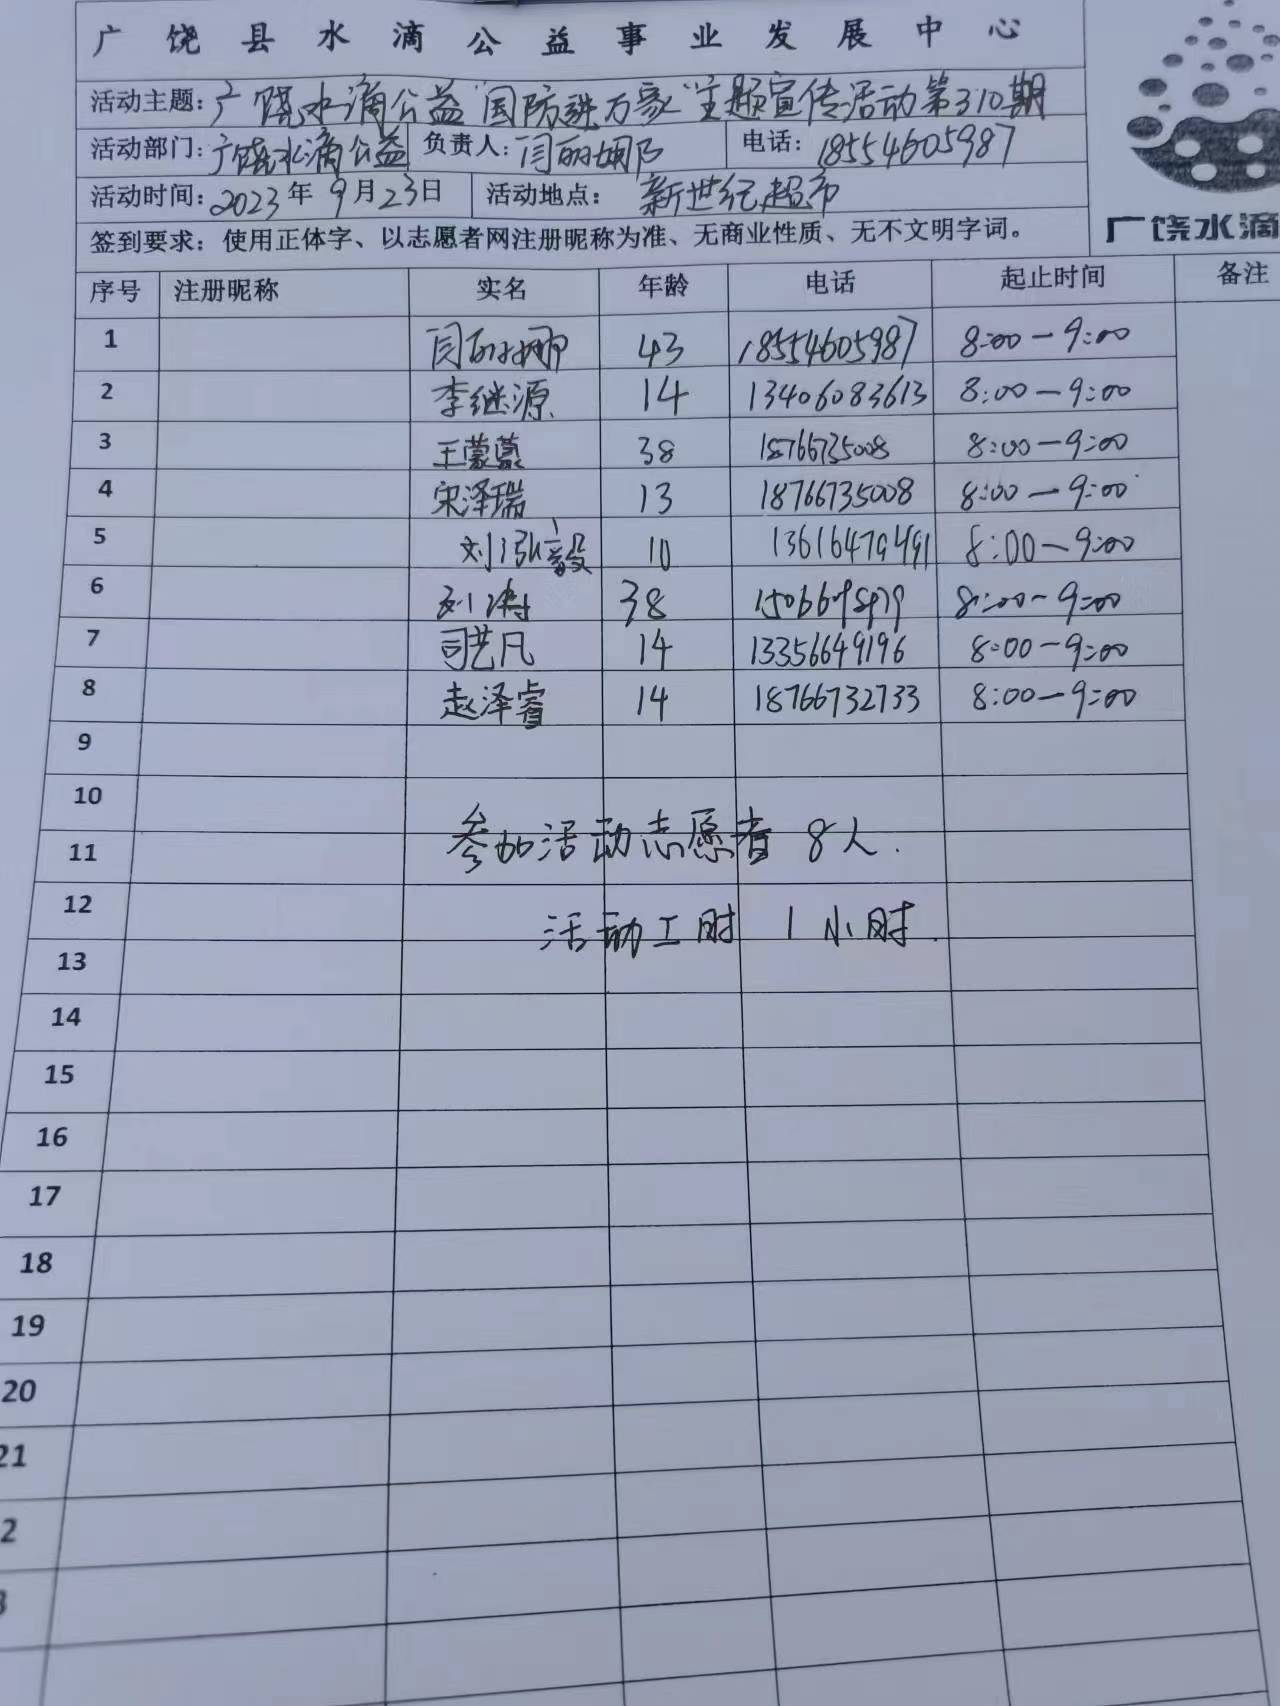 广饶县水滴公益事业发展中心
活动主题：广饶水滴公益"国防进万家"主题宣传活动第310期
活动部门：广饶水滴公益 负责人：闫丽娜 电话：18554605987
活动时间：2023年9月23日 活动地点：新世纪超市
签到要求：使用正体字、以志愿者网注册昵称为准、无商业性质、无不文明字词。
广饶水滴
序号 注册昵称 实名 年龄 电话 起止时间 备注
1 闫丽娜 43 18554605987 8:00-9:00
2 李继源 14 13406083613 8:00-9:00
3 王蒙蒙 38 18766735008 8:00-9:00
4 宋泽瑞 13 18766735008 8:00-9:00
5 刘泓毅 10 13616479491 8:00-9:00
6 刘涛 38 8:00-9:00
7 司艺凡 14 13356649196 8:00-9:00
8 赵泽睿 14 18766732733 8:00-9:00
9
10
参加活动志愿者 8人.
11
12
活动工时 1小时.
13
14
15
16
17
18
19
20
21
2
3